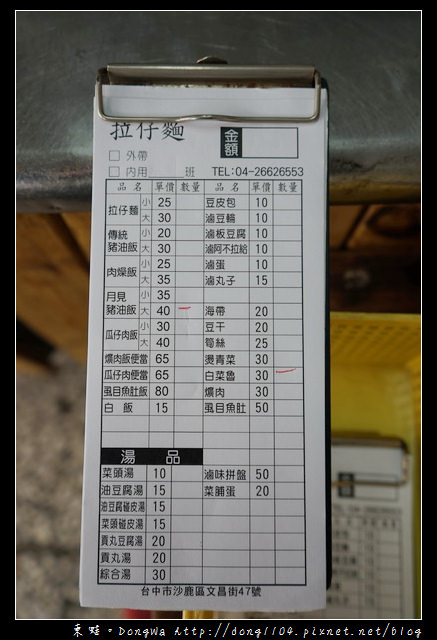 拉仔麵 金額
□ 外帶
□ 內用____班 TEL:04-26626553
品名 單價 數量 品名 單價 數量
拉仔麵 小 25 豆皮包 10
大 30 滷豆輪 10
傳統豬油飯 小 20 滷板豆腐 10
大 30 滷阿不拉給 10
肉燥飯 小 25 滷蛋 10
大 35 滷丸子 15
月見豬油飯 小 35
大 40 海帶 20
瓜仔肉飯 小 30 豆干 20
大 40 筍絲 25
爌肉飯便當 65 燙青菜 30
瓜仔肉便當 65 白菜魯 30
虱目魚肚飯 80 爌肉 30
白飯 15 虱目魚肚 50
湯品
菜頭湯 10 滷味拼盤 50
油豆腐湯 15 菜脯蛋 20
油豆腐碰皮湯 15
菜頭碰皮湯 15
貢丸豆腐湯 20
貢丸湯 20
綜合湯 30
台中市沙鹿區文昌街47號
東蛙。DongWa http://dong1104.pixnet.net/blog